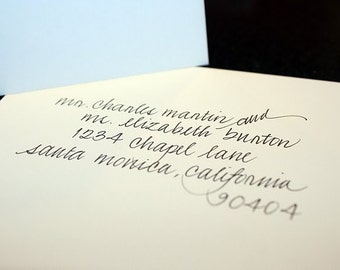 mr. charles martin and
ms. elizabeth burton
1234 chapel lane
santa monica, california
90404